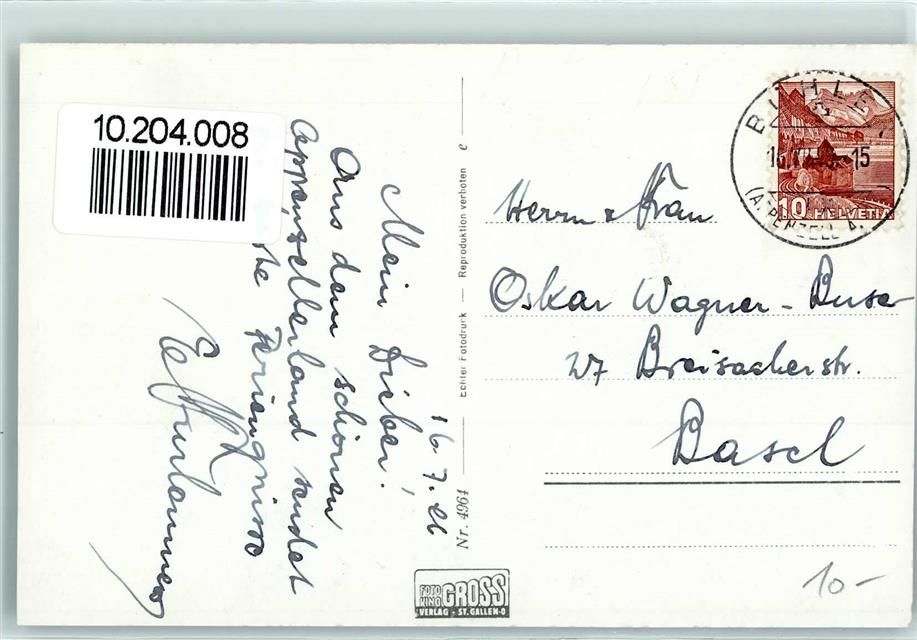 10.204.008
16.7.46
Mein Lieber!
Aus dem schönen
Appenzellerland sendet
Feriengrüsse
Echter Fotodruck — Reproduktion verboten e
Nr. 4964
BÜHLER
15
(APPENZELL A.
10 HELVETIA
Herrn & Frau
Oskar Wagner-Buser
27 Breisacherstr.
Basel
FOTO KINO GROSS
VERLAG - ST. GALLEN-O
10-